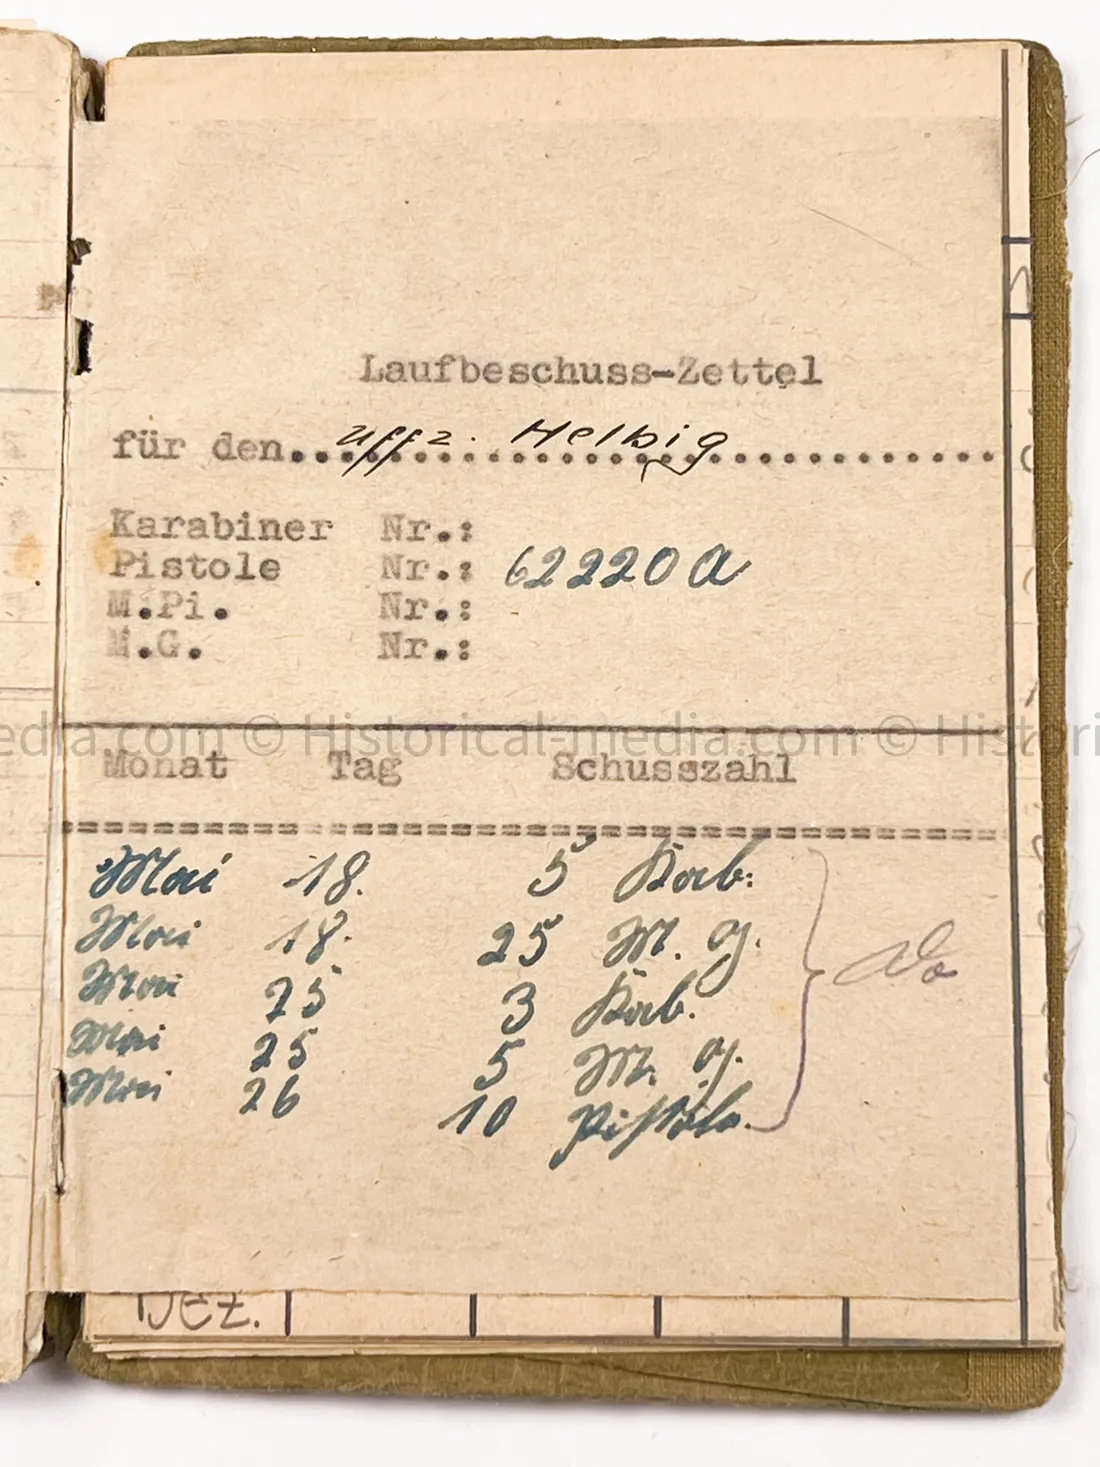 Laufbeschuss-Zettel
für den... Uffz. Helbig ...
Karabiner Nr.:
Pistole Nr.: 62220 a
M.Pi. Nr.:
M.G. Nr.:
edia.com © Historical-media.com © Histori
Monat Tag Schusszahl
Mai 18. 5 Kab.
Mai 18. 25 M. G.
Mai 25 3 Kab.
Mai 25 5 M. G.
Mai 26 10 Pistole.
Dez.